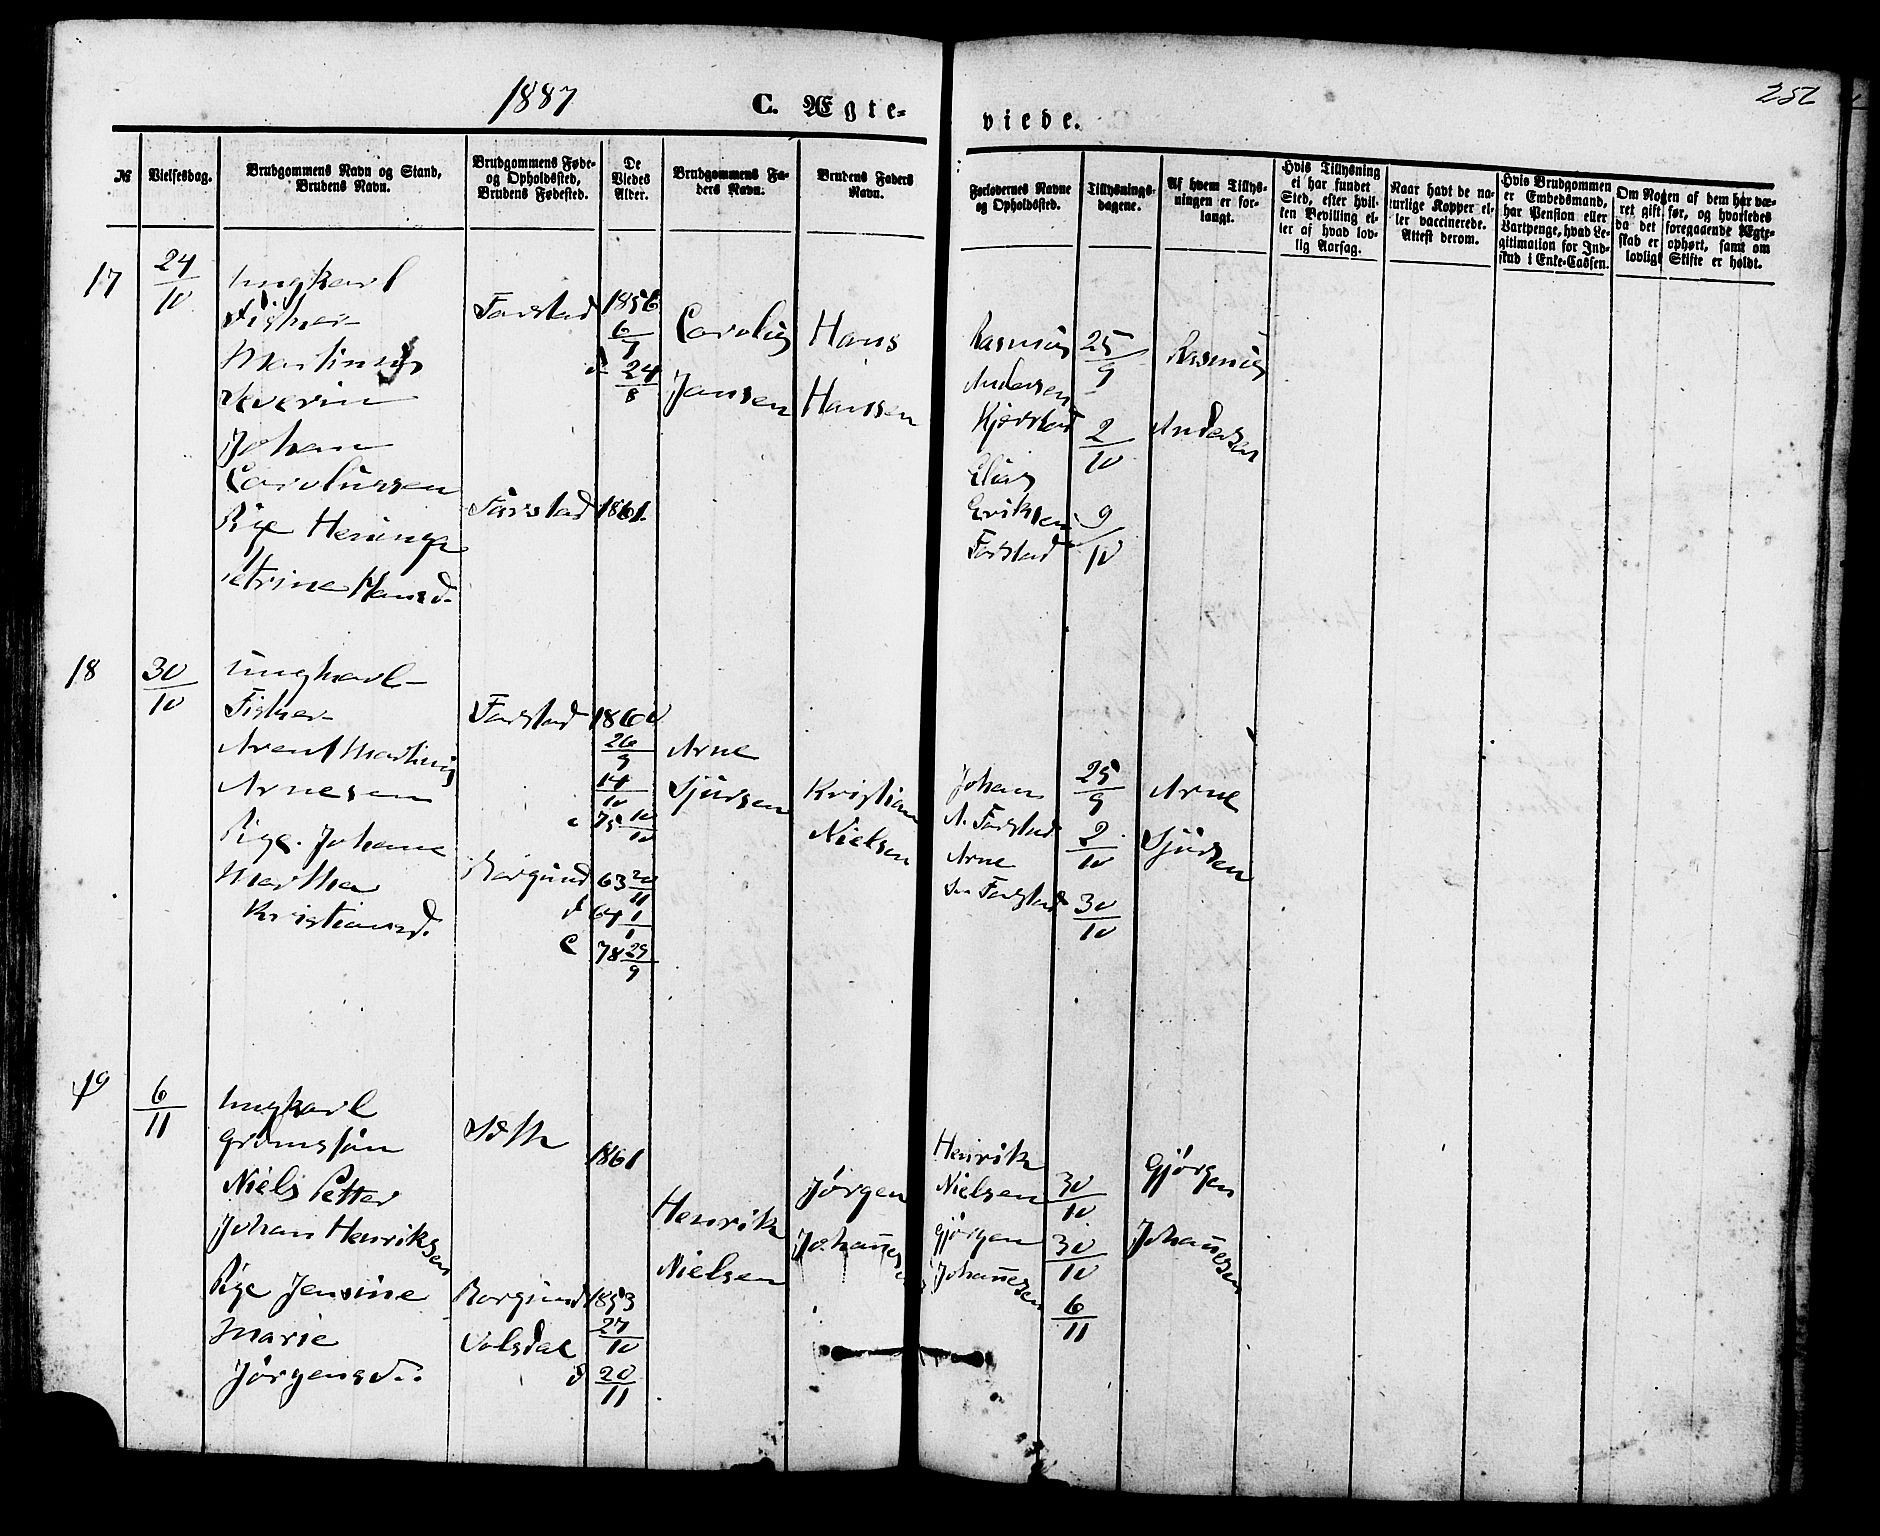 1887
C. Ægte-
viede.
256
№
Vielsesdag.
Brudgommens Navn og Stand,
Brudens Navn.
Brudgommens Føde-
og Opholdssted,
Brudens Fødested.
De
Viedes
Alder.
Brudgommens Fa-
ders Navn.
Brudens Faders
Navn.
Forlovernes Navne
og Opholdssted.
Tillysnings-
dagene.
Af hvem Tillys-
ningen er for-
langt.
Hvis Tillysning
ei har fundet
Sted, efter hvil-
ken Bevilling el-
ler af hvad lov-
lig Aarsag.
Naar havt de na-
turlige Kopper el-
ler vaccinerede.
Attest derom.
Hvis Brudgommen
er Embedsmand,
har Pension eller
Vartpenge, hvad Le-
gitimation for Ind-
skud i Enke-Cassen.
Om Nogen af dem har væ-
ret gift før, og hvorledes
da det foregaaende Ægte-
skab er ophørt, samt om
lovligt Skifte er holdt.
17
24/10
Ungkarl
Fisker
Martinus
Severin
Johan
Carolussen
Pige Henninge
Petrine Hansd.
Farstad
Farstad
1856
6/7
d 24/8
1861
Carolus
Jansen
Hans
Hansen
Rasmus
Andersen
Kjerstad
Elias
Eriksen
Farstad
25/9
2/10
9/10
Rasmus
Andersen
18
30/10
Ungkarl
Fisker
Arent Martinus
Arnesen
Pige Johane
Martha
Kristiansd.
Farstad
Borgund
1860
26/9
14/10
c 75 10/10
63 20/11
d 64 1/1
c 78 29/9
Arne
Sjursen
Kristian
Nielsen
Johan
A. Farstad
Arne
S. Farstad
25/9
2/10
30/10
Arne
Sjursen
19
6/11
Ungkarl
Niels Petter
Johan Henriksen
Pige Jensine
Marie
Jørgensd.
Borgund
Volsdal
1861
1853
27/10
d 20/11
Henrik
Nielsen
Jørgen
Johannesen
Henrik
Nielsen
Gjørgen
Johannesen
30/10
30/10
6/11
Gjørgen
Johannesen